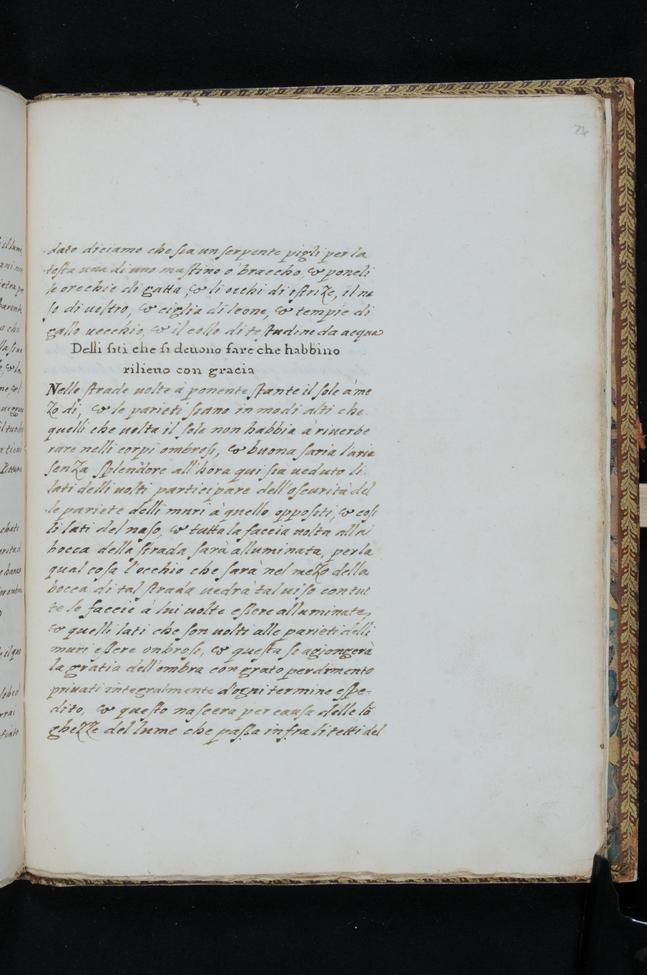 74
dato diciamo che sia un serpente pigli per la
testa una di uno mastino o braccho, & poneli
le orechie di gatta, & li occhi di istrize, il na
so di veltro, & ciglia di leone, & tempie di
gallo vecchio, & il collo di testudine da acqua
Delli siti che si devono fare che habbino
rilievo con gracia
Nelle strade volte à ponente stante il sole à me
zo di, & le parieti siano in modi alti che
quelli che volta il sole non habbia à riverbe
rare nelli corpi ombrosi, & buona saria l'aria
senza splendore all'hora qui sia veduto li
lati delli volti participare dell'oscurità del
le pariete delli muri à quello oppositi, & cosi
li lati del naso, & tutta la faccia volta alla
bocca della strada sarà alluminata, per la
qual cosa l'occhio che sarà nel mezo della
bocca di tal strada vedrà tal viso con tut
te le faccie à lui volte essere alluminate,
& quelli lati che son volti alle parieti delli
muri essere onbrosi, & questa se agiongerà
la gratia dell'ombra con grato perdimento
privati integralmente d'ogni termine espe-
dito, & questo nascera per causa delle lō
ghezze del lume che passa infra li tetti del